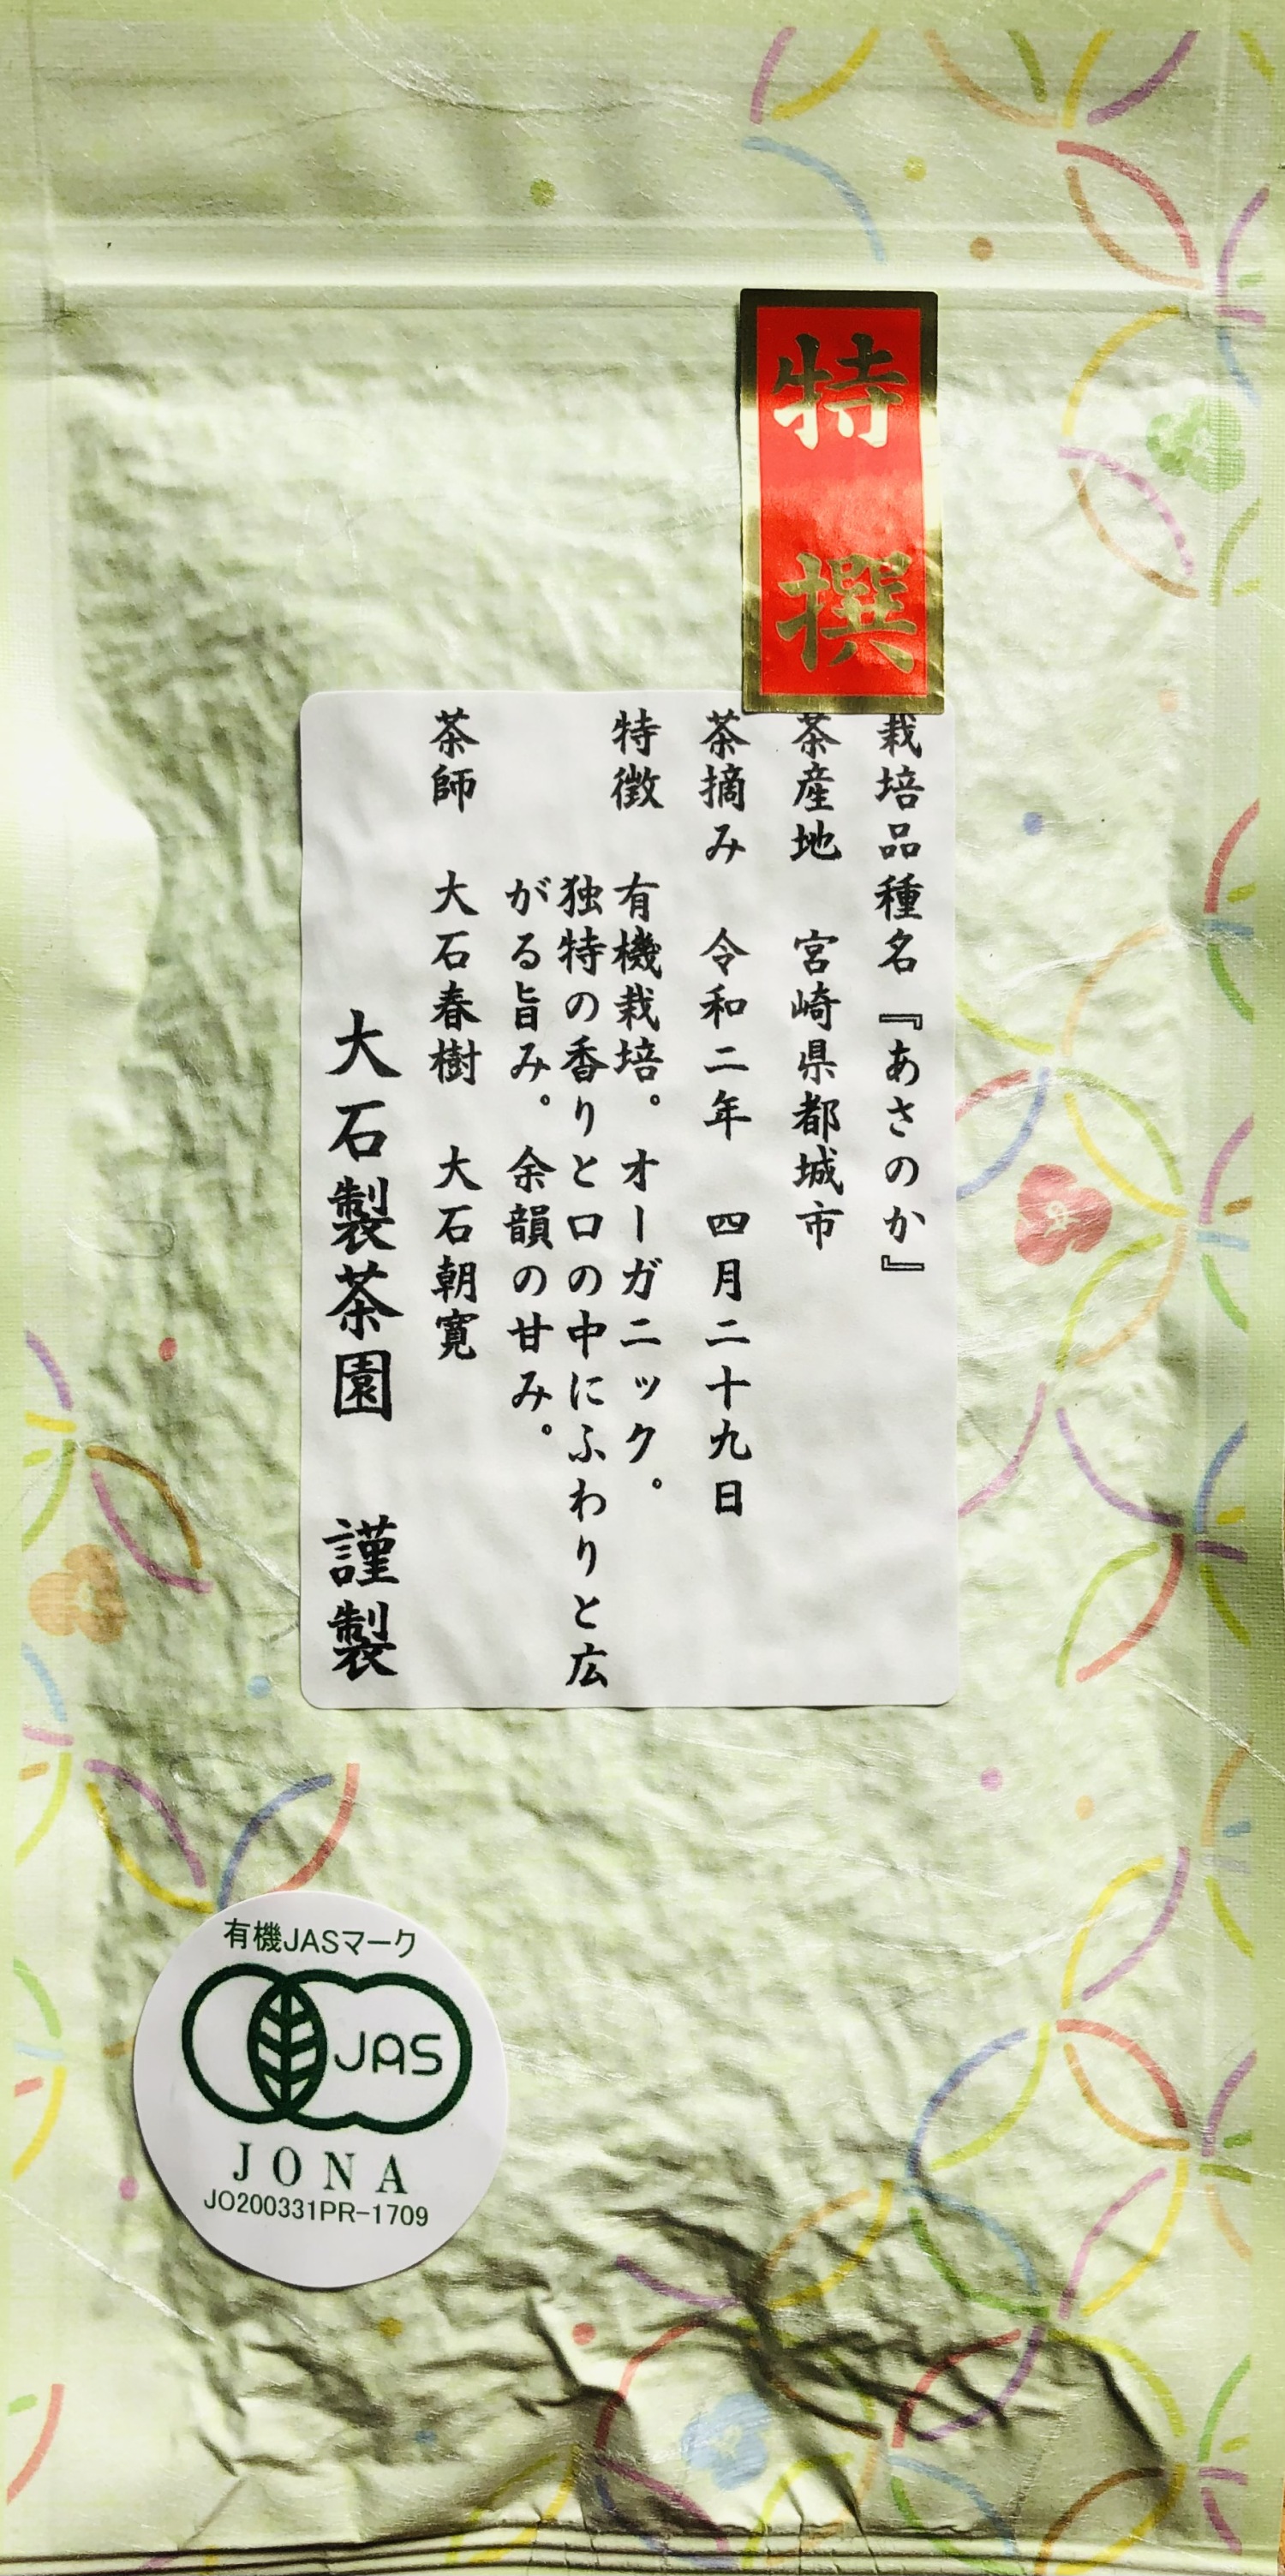 特撰
栽培品種名『あさのか』
茶産地 宮崎県都城市
茶摘み 令和二年 四月二十九日
特徴 有機栽培。オーガニック。
独特の香りと口の中にふわりと広
がる旨み。余韻の甘み。
茶師 大石春樹 大石朝寛
大石製茶園 謹製
有機JASマーク
JAS
JONA
JO200331PR-1709